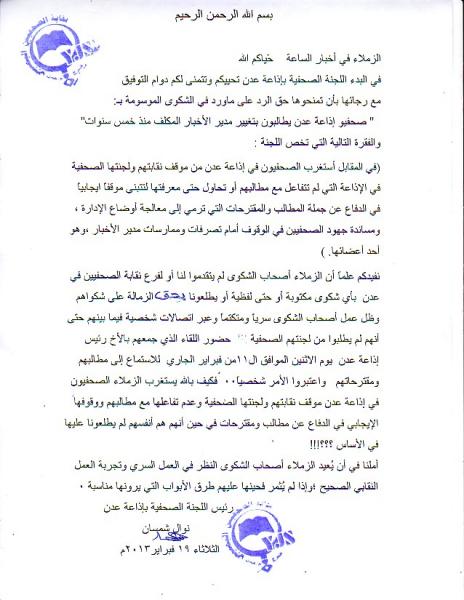 بسم الله الرحمن الرحيم
الزملاء في أخبار الساعة حياكم الله
في البدء اللجنة الصحفية بإذاعة عدن تحييكم وتتمنى لكم دوام التوفيق
مع رجائها بأن تمنحوها حق الرد على ماورد في الشكوى الموسومة بـ:
" صحفيو إذاعة عدن يطالبون بتغيير مدير الأخبار المكلف منذ خمس سنوات"
والفقرة التالية التي تخص اللجنة :
(في المقابل أستغرب الصحفيون في إذاعة عدن من موقف نقابتهم ولجنتها الصحفية
في الإذاعة التي لم تتفاعل مع مطالبهم أو تحاول حتى معرفتها لتتبنى موقفاً ايجابياً
في الدفاع عن جملة المطالب والمقترحات التي ترمي إلى معالجة أوضاع الإدارة ،
ومساندة جهود الصحفيين في الوقوف أمام تصرفات وممارسات مدير الأخبار ،وهو
أحد أعضائها. )
نفيدكم علماً أن الزملاء أصحاب الشكوى لم يتقدموا لنا أو لفرع نقابة الصحفيين في
عدن بأي شكوى مكتوبة أو حتى لفظية أو يطلعونا بحق الزمالة على شكواهم
وظل عمل أصحاب الشكوى سرياً ومتكتماً وعبر اتصالات شخصية فيما بينهم حتى
أنهم لم يطلبوا من لجنتهم الصحفية حضور اللقاء الذي جمعهم بالأخ رئيس
إذاعة عدن يوم الاثنين الموافق ال١١من فبراير الجاري للاستماع إلى مطالبهم
ومقترحاتهم واعتبروا الأمر شخصياً٠٠ فكيف بالله يستغرب الزملاء الصحفيون
في إذاعة عدن موقف نقابتهم ولجنتها الصحفية وعدم تفاعلها مع مطالبهم ووقوفها
الإيجابي في الدفاع عن مطالب ومقترحات في حين أنهم هم أنفسهم لم يطلعونا عليها
في الأساس ؟؟؟!!!
أملنا في أن يُعيد الزملاء أصحاب الشكوى النظر في العمل السري وتجربة العمل
النقابي الصحيح ؛وإذا لم يُثمر فحينها عليهم طرق الأبواب التي يرونها مناسبة ٠
رئيس اللجنة الصحفية بإذاعة عدن
نوال شمسان
الثلاثاء ١٩ فبراير٢٠١٣م